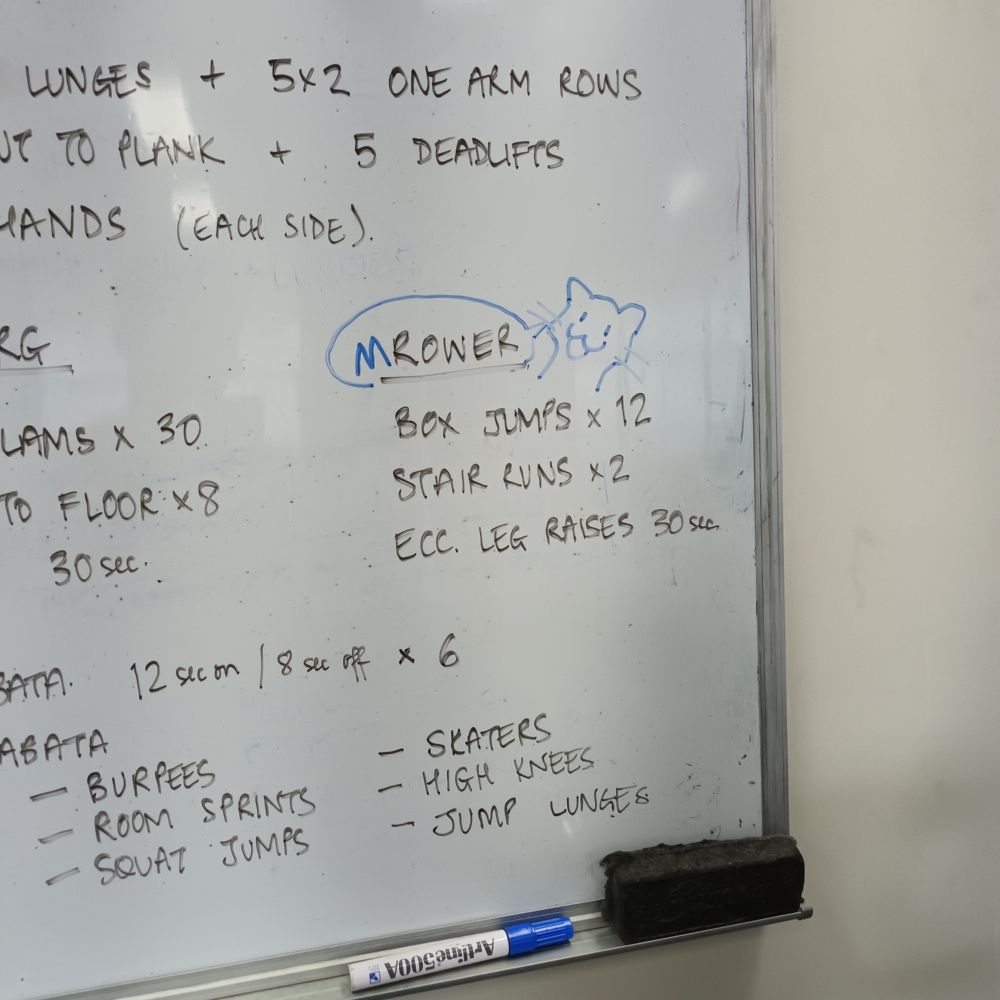 LUNGES + 5x2 ONE ARM ROWS
UT TO PLANK + 5 DEADLIFTS
HANDS (EACH SIDE).
RG
MROWER
LAMS x 30
BOX JUMPS x 12
TO FLOOR x 8
STAIR RUNS x2
30 sec.
ECC. LEG RAISES 30 sec
BATA. 12 sec on / 8 sec off x 6
ABATA
— BURPEES
— ROOM SPRINTS
— SQUAT JUMPS
— SKATERS
— HIGH KNEES
— JUMP LUNGES
Artline500A